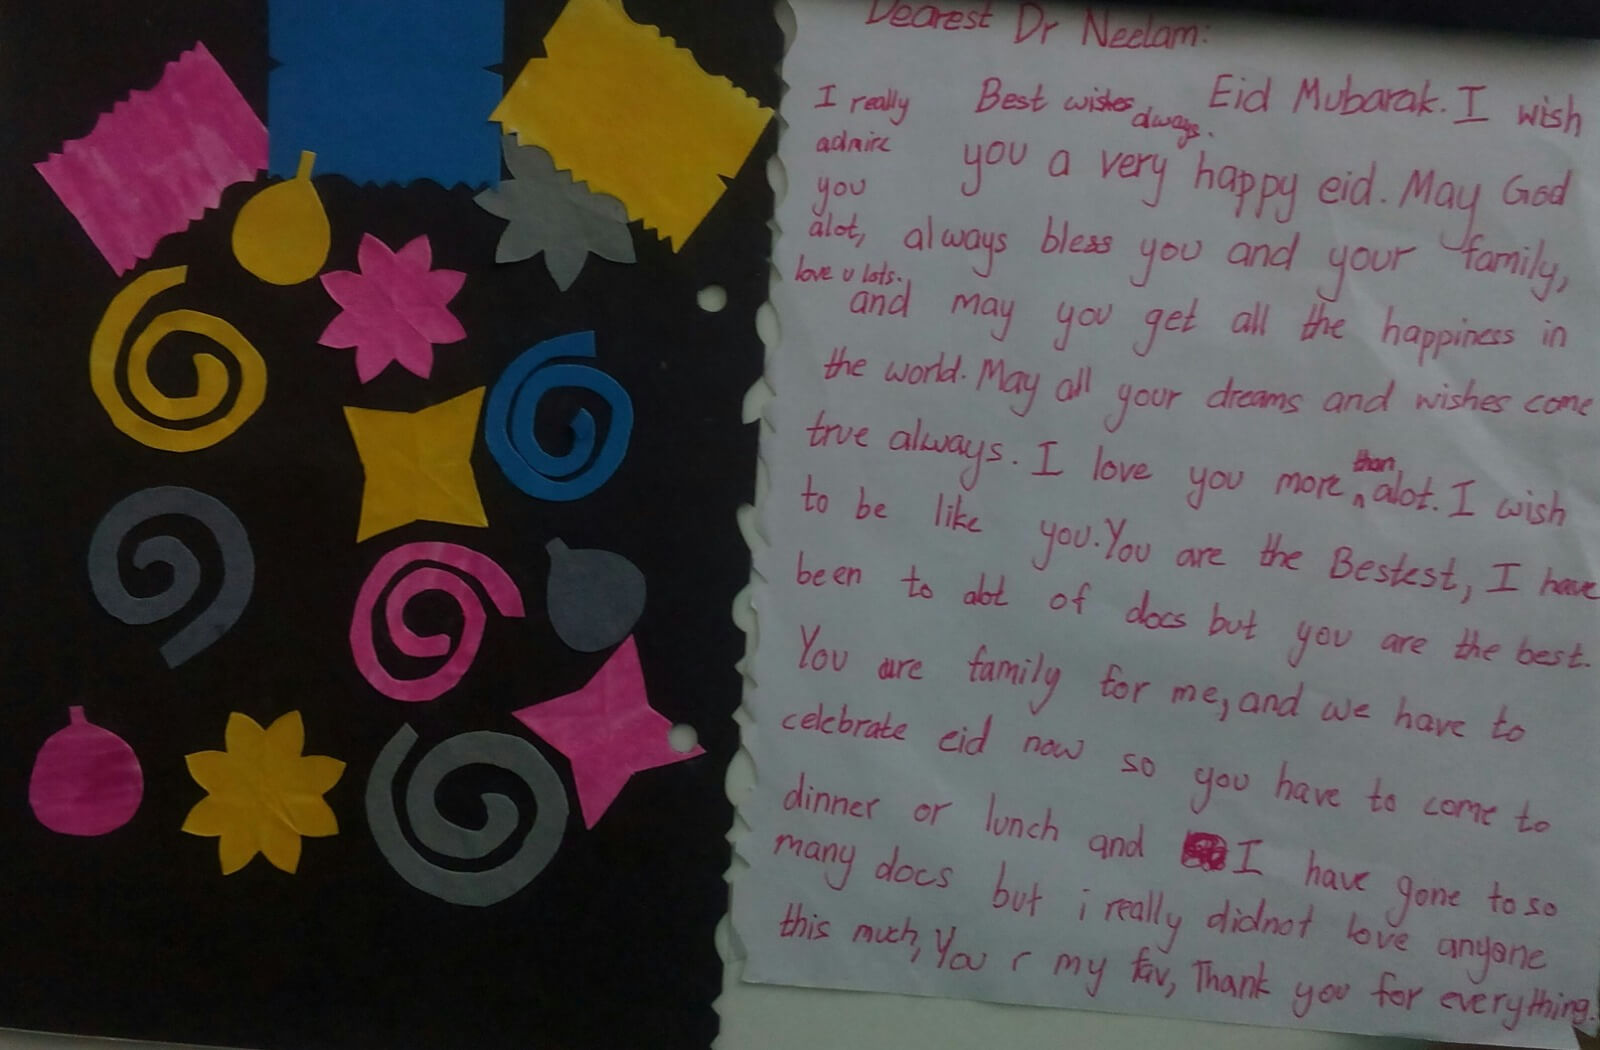 Dearest Dr Neelam:
I really
admire
you
alot,
love u lots.
Best wishes always.
Eid Mubarak. I wish
you a very happy eid. May God
always bless you and your family,
and may you get all the happiness in
the world. May all your dreams and wishes come
true always. I love you more than alot. I wish
to be like you. You are the Bestest, I have
been to alot of docs but you are the best.
You are family for me, and we have to
celebrate eid now so you have to come to
dinner or lunch and I have gone to so
many docs but i really didnot love anyone
this much, You r my fav, Thank you for everything.